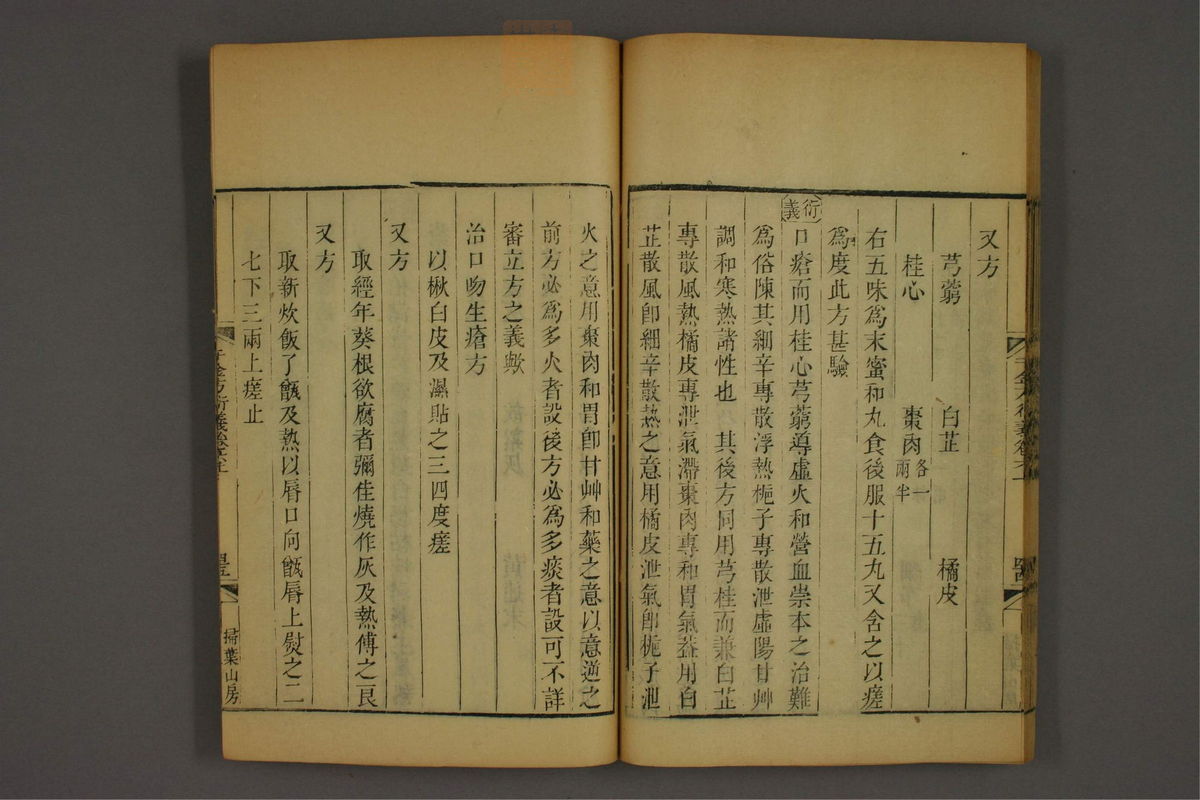 又方
芎藭　白芷　橘皮
桂心　棗肉各一兩半
右五味爲末蜜和丸食後服十五丸又含之以瘥
爲度此方甚驗
衍義
口瘡而用桂心芎藭導虛火和營血祟本之治難
爲俗陳其細辛專散浮熱梔子專散泄虛陽甘艸
調和寒熱諸性也　其後方同用芎桂而兼白芷
專散風熱橘皮專泄氣滯棗肉專和胃氣葢用白
芷散風卽細辛散熱之意用橘皮泄氣卽梔子泄
火之意用棗肉和胃卽甘艸和藥之意以意逆之
前方必爲多火者設後方必爲多痰者設可不詳
審立方之義歟
治口吻生瘡方
以楸白皮及濕貼之三四度瘥
又方
取經年葵根欲腐者彌佳燒作灰及熱傅之良
又方
取新炊飯了甑及熱以唇口向甑唇上熨之二
七下三兩上瘥止
千金方衍義卷六上
掃葉山房